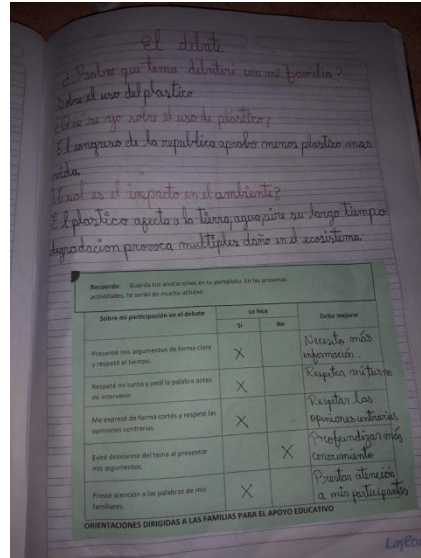 El debate
¿Sobre que tema debatiré con mi familia?
Sobre el uso del plastico
¿Que se oyo sobre el uso de plástico?
El congreso de la republica aprobó menos plastico mas
vida.
¿Cual es el impacto en el ambiente?
El plastico afecta a la tierra, agua, aire su largo tiempo
degradacion provoca multiples daño en el ecosistema.
Recuerda: Guarda tus anotaciones en tu portafolio. En las próximas
actividades, te serán de mucha utilidad.
Sobre mi participación en el debate
Lo hice
Debo mejorar
Si
No
Presenté mis argumentos de forma clara
y respeté el tiempo.
X
Necesito más
información.
Respeté mi turno y pedí la palabra antes
de intervenir.
X
Respetar mi turno
Me expresé de forma cortés y respeté las
opiniones contrarias.
X
Respetar las
opiniones contrarias
Evité desviarme del tema al presentar
mis argumentos.
X
Profundizar más
conocimiento
Presté atención a las palabras de mis
familiares.
X
Prestar atención
a mis participantes
ORIENTACIONES DIRIGIDAS A LAS FAMILIAS PARA EL APOYO EDUCATIVO